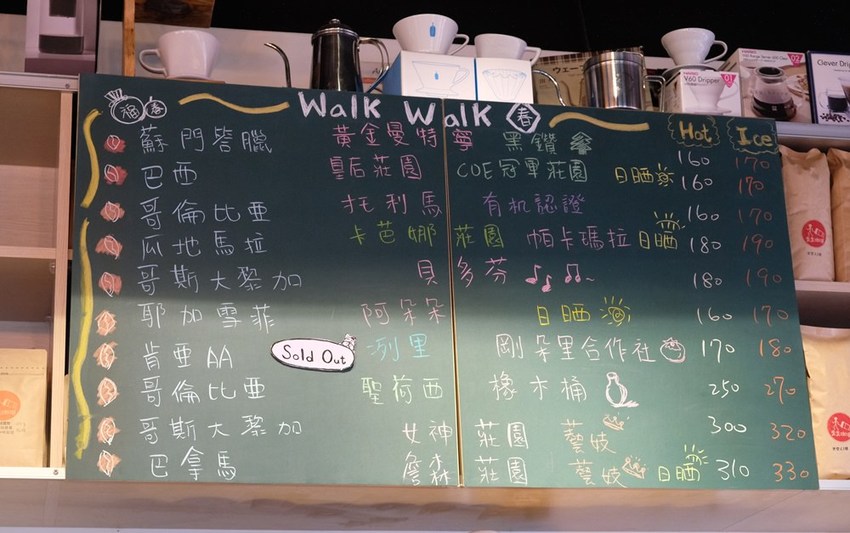 V60 Dripper 01
Clever Dripper
福 春 Walk Walk 春 Hot Ice
蘇門答臘 黃金曼特寧 黑鑽 160 170
巴西 皇后莊園 COE冠軍莊園 日晒 160 170
哥倫比亞 托利馬 有机認證 160 170
瓜地馬拉 卡芭娜 莊園 帕卡瑪拉 日晒 180 190
哥斯大黎加 貝多芬 180 190
耶加雪菲 阿朵朵 日晒 160 170
肯亞AA Sold Out 洌里 剛朵里合作社 170 180
哥倫比亞 聖荷西 橡木桶 250 270
哥斯大黎加 女神 莊園 藝妓 300 320
巴拿馬 詹森 莊園 藝妓 日晒 310 330